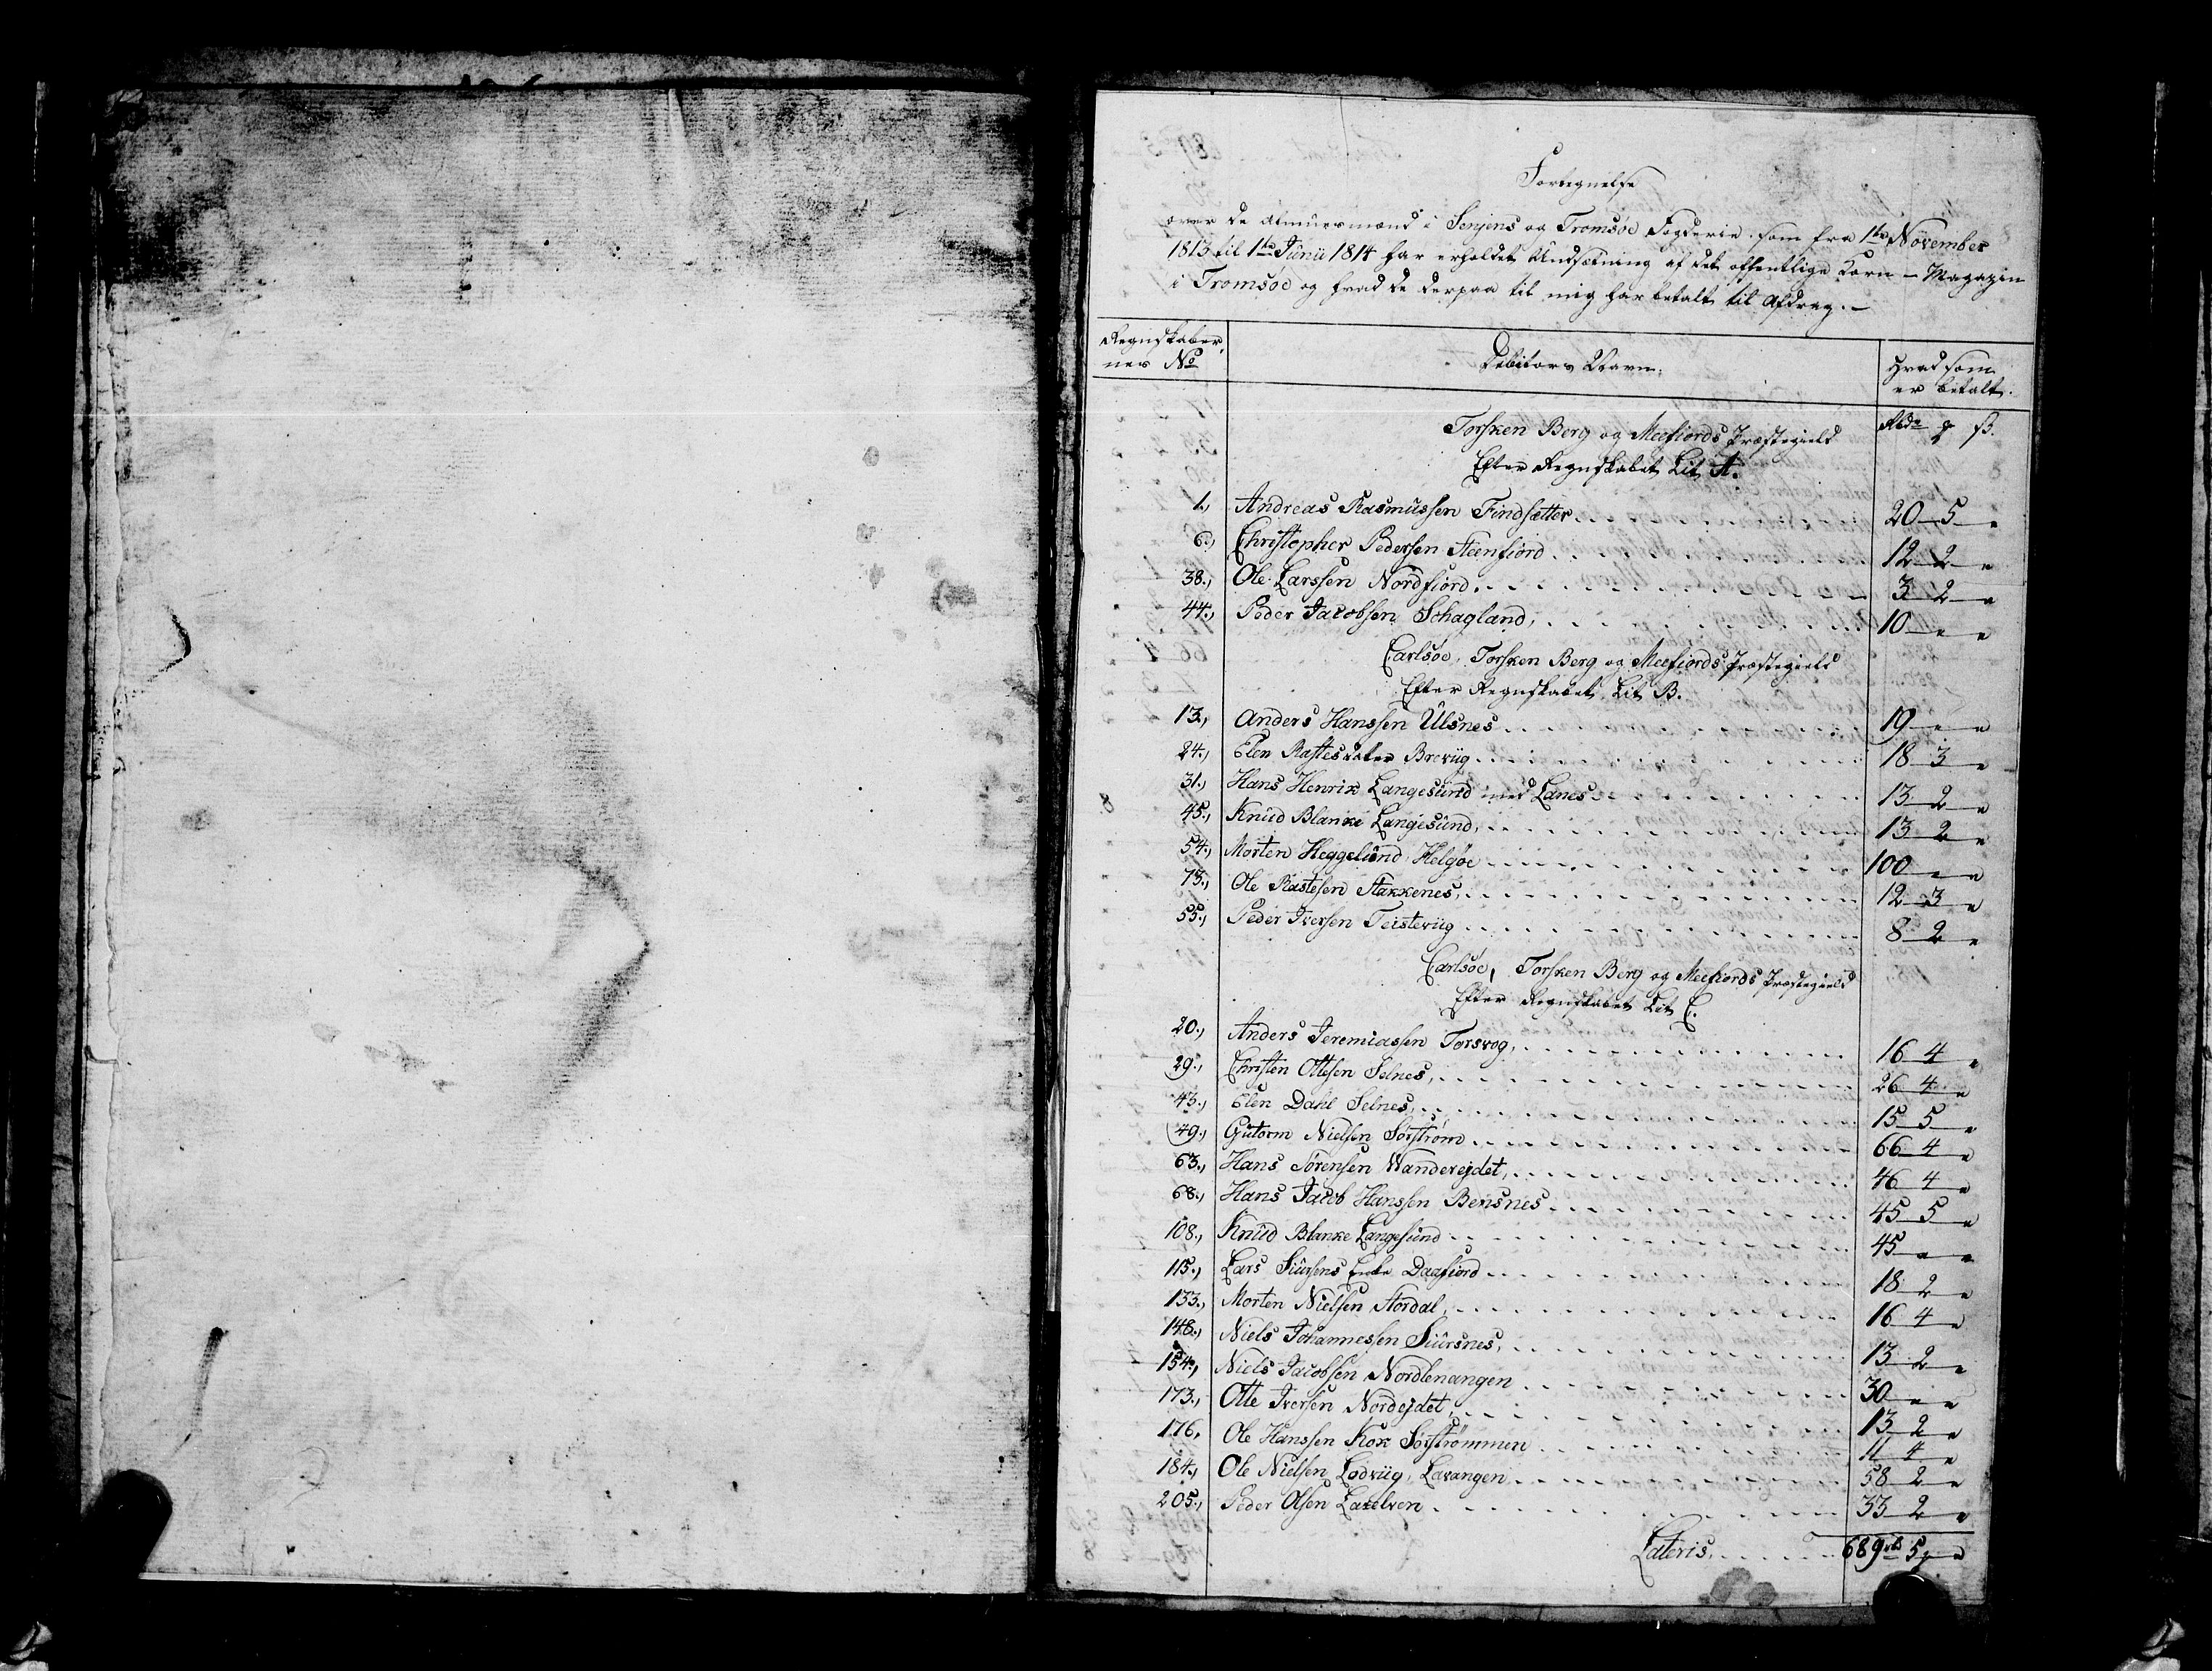 Fortegnelse
over de Almuesmænd i Senjens og Tromsøe Fogderie som fra 1ste November
1813 til 1ste Junii 1814 har erholdet Undsætning af det offentlige Korn-Magazin
i Tromsøe og hvad de derpaa til mig har betalt til Afdrag.-
Regnskaber,
nes No
Debitors Navn.
Hvad som
er betalt.
Torsken Berg og Meefiords Præstegield
Rbd. ß.
Efter Regnskabet Lit A.
1., Andreas Rasmussen Findsætter 20 5 "
6., Christopher Pedersen Steenfiord 12 2 "
38., Ole Larssen Nordfiord 3 2 "
44., Peder Jacobsen Schagland, 10 " "
Carlsøe, Torsken Berg og Meefiords Præstegield
Efter Regnskabet Lit B.
13., Anders Hanssen Ulsnes 19 " "
24., Elen Rastesdatter Brevüg 18 3 "
31., Hans Henrix Langesund med Lanes 13 2 "
45., Knüd Blanke Langesund, 13 2 "
54., Morten Heggelund Helgøe 100 " "
73., Ole Rastesen Stakkenes, 12 3 "
55., Peder Iversen Teistevüg 8 2 "
Carlsøe, Torsken Berg og Meefiords Præstegield
Efter Regnskabet Lit C.
20., Anders Jeremiassen Torsvog, 16 4 "
29., Christen Ottesen Selnes, 26 4 "
43., Elen Dahl Selnes, 15 5 "
49., Gutorm Nielsen Sørstrøm 66 4 "
63., Hans Sørensen Wanderejdet, 46 4 "
68., Hans Jacob Hanssen Bensnes 45 5 "
108., Knüd Blanke Langesund 45 " "
115., Lars Siursens Enke Daafiord 18 2 "
133., Morten Nielsen Stordal, 16 4 "
148., Niels Johannessen Siursnes, 13 2 "
154., Niels Jacobsen Nordlenangen 30 " "
173., Otte Iversen Nordejdet, 13 2 "
176, Ole Hanssen Kok Sørstrømmen 11 4 "
184., Ole Nielsen Lodvüg, Lavangen 58 2 "
205., Peder Olsen Laxelven 33 2 "
Lateris, 689 rb 5 "